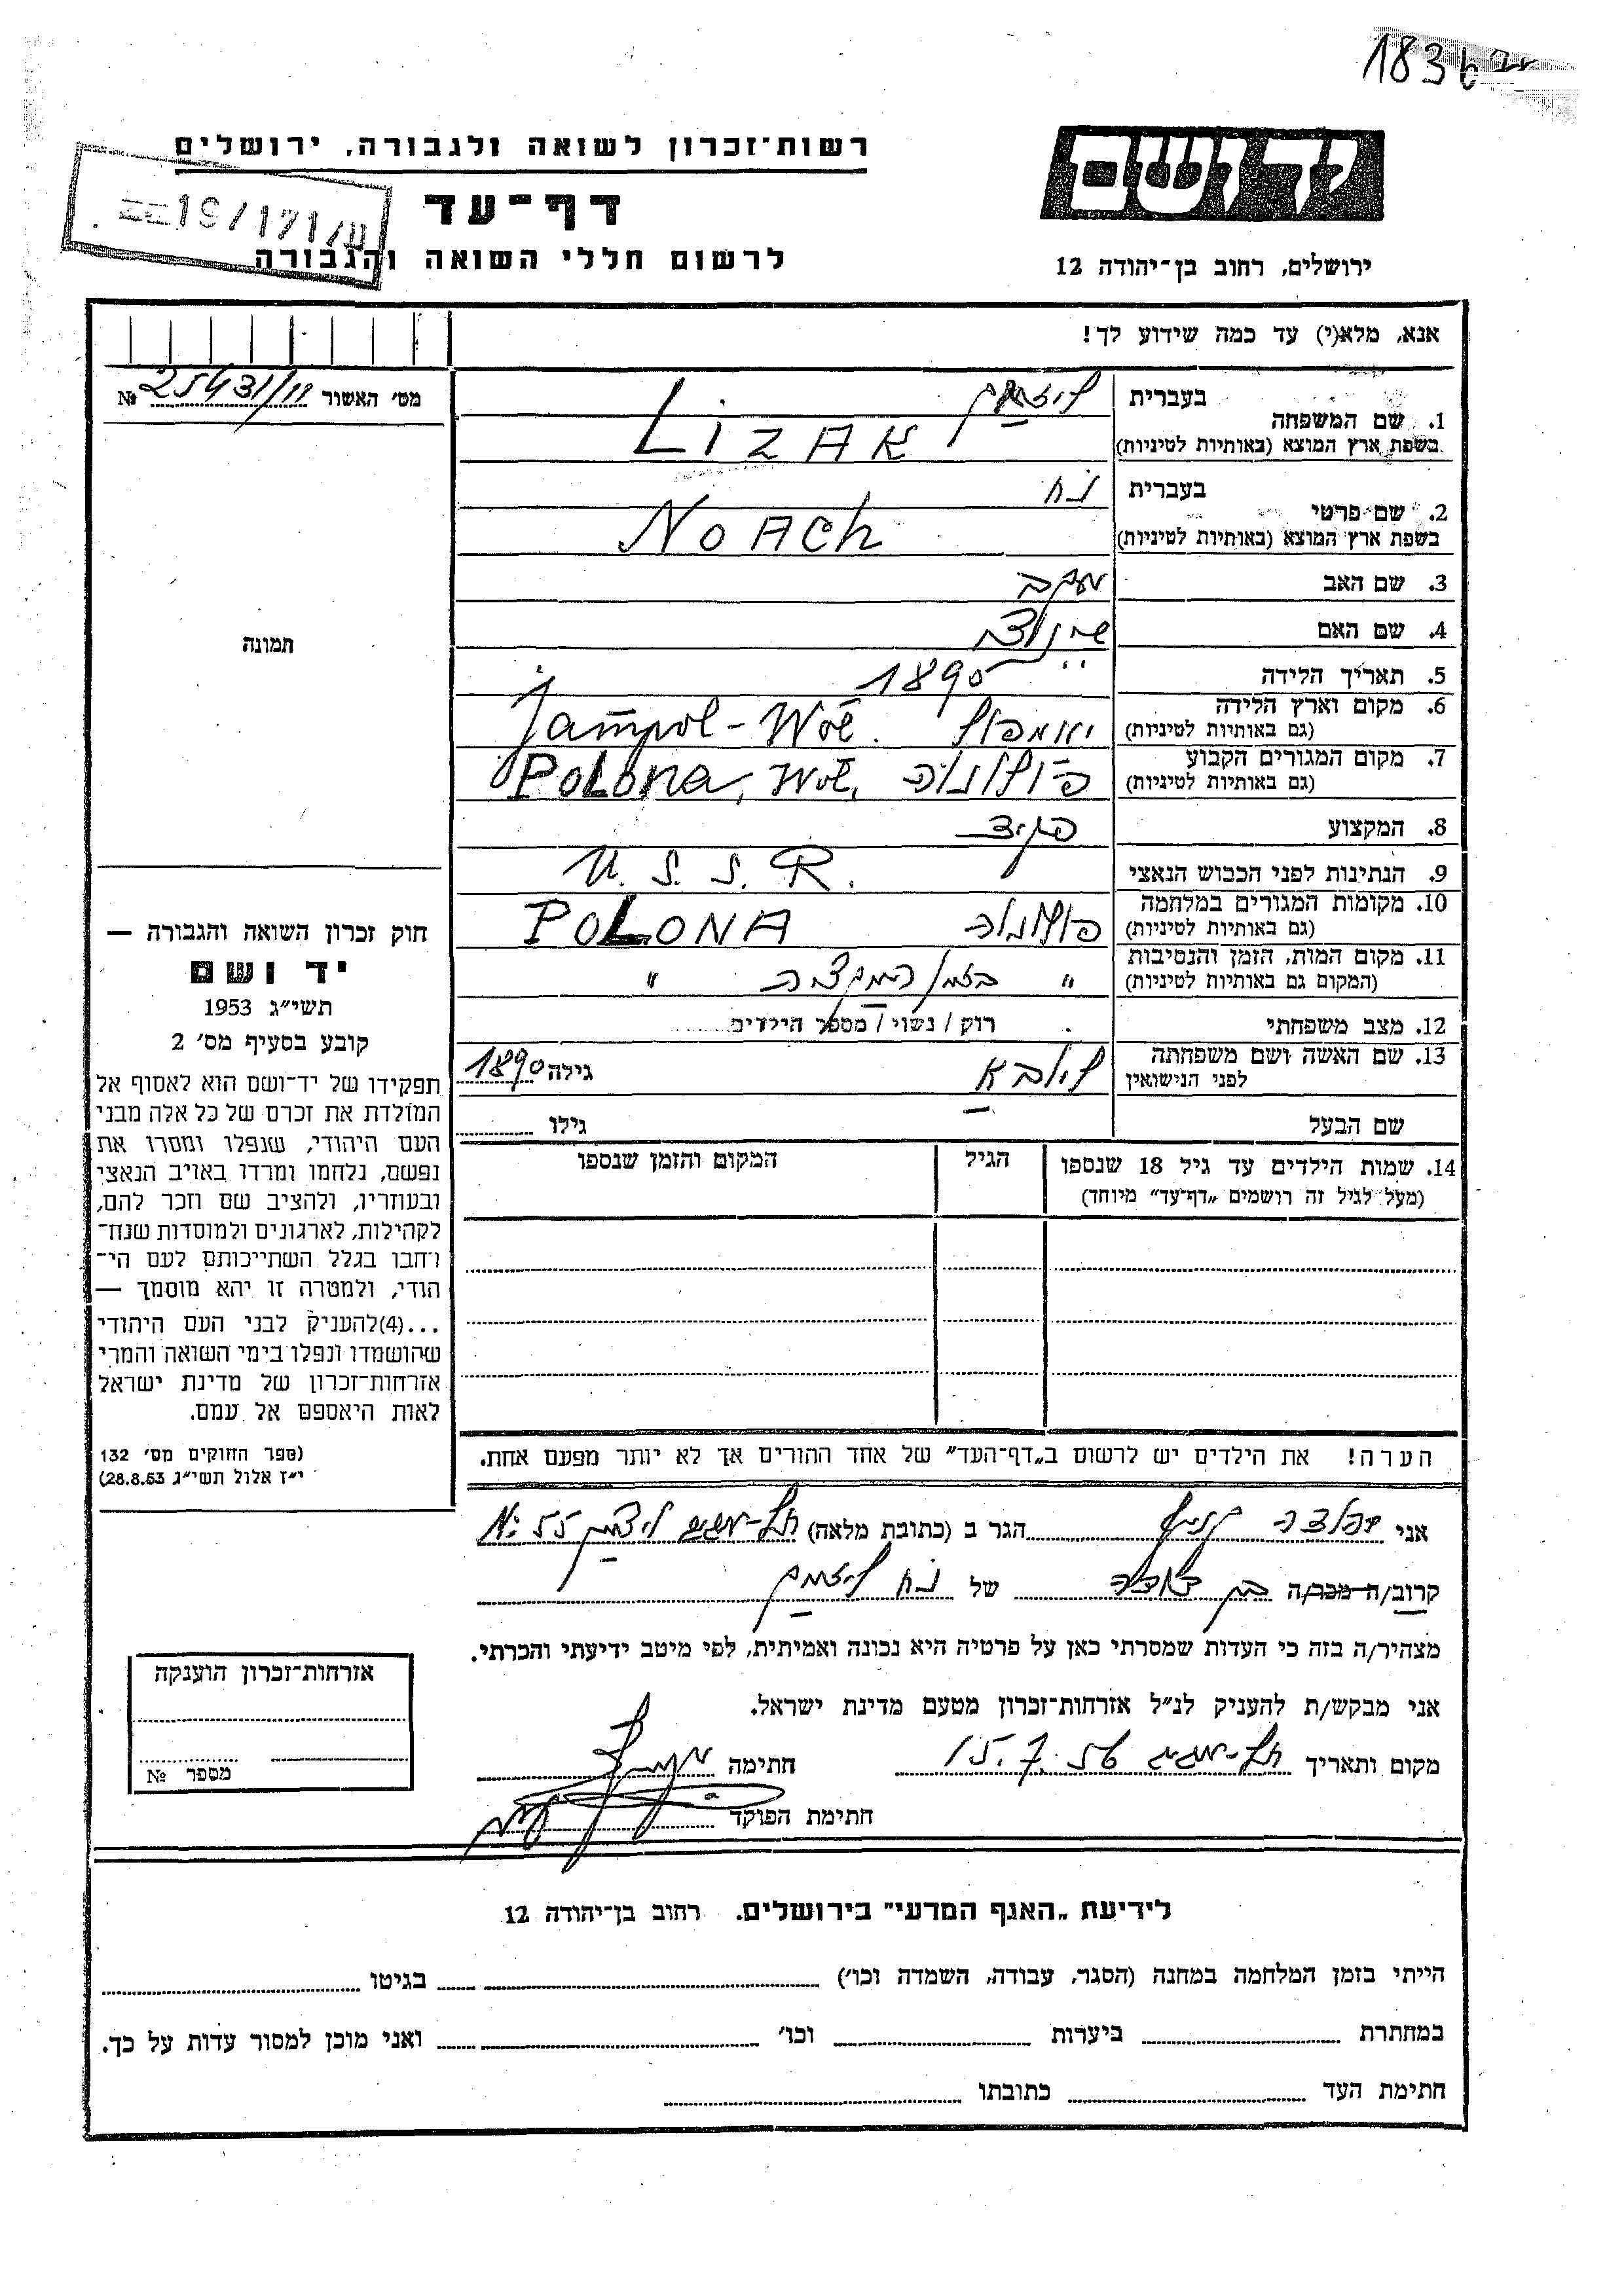 1836
רשות־זכרון לשואה ולגבורה, ירושלים
ידושם
דף־עד
לרשום חללי השואה והגבורה
ירושלים, רחוב בן־יהודה 12
אנא, מלא(י) עד כמה שידוע לך!
מס׳ האשור № 25431/111
1. שם המשפחה
בעברית
בשפת ארץ המוצא (באותיות לטיניות) LIZAK
2. שם פרטי
בעברית נח
בשפת ארץ המוצא (באותיות לטיניות) NOACh
3. שם האב יעקב
4. שם האם
5. תאריך הלידה 1890
6. מקום וארץ הלידה
(גם באותיות לטיניות) יאמפול Jampol - Woł.
7. מקום המגורים הקבוע
(גם באותיות לטיניות) פולונה Polona, Woł.
8. המקצוע פקיד
9. הנתינות לפני הכבוש הנאצי U. S. S. R.
10. מקומות המגורים במלחמה
(גם באותיות לטיניות) פולונה POLONA
11. מקום המות, הזמן והנסיבות
(המקום גם באותיות לטיניות) " "
12. מצב משפחתי רוק / נשוי / מספר הילדים
13. שם האשה ושם משפחתה
לפני הנישואין גילה 1890
שם הבעל גילו
14. שמות הילדים עד גיל 18 שנספו הגיל המקום והזמן שנספו
(מעל לגיל זה רושמים „דף־עד” מיוחד)
הערה! את הילדים יש לרשום ב„דף־העד” של אחד ההורים אך לא יותר מפעם אחת.
תמונה
חוק זכרון השואה והגבורה —
יד ושם
תשי״ג 1953
קובע בסעיף מס׳ 2
תפקידו של יד־ושם הוא לאסוף אל
המולדת את זכרם של כל אלה מבני
העם היהודי, שנפלו ומסרו את
נפשם, נלחמו ומרדו באויב הנאצי
ובעוזריו, ולהציב שם וזכר להם,
לקהילות, לארגונים ולמוסדות שנח־
רבו בגלל השתייכותם לעם הי־
הודי, ולמטרה זו יהא מוסמך —
...(4)להעניק לבני העם היהודי
שהושמדו ונפלו בימי השואה והמרי
אזרחות־זכרון של מדינת ישראל
לאות היאספם אל עמם.
(ספר החוקים מס׳ 132
י״ז אלול תשי״ג 28.8.53)
אני הגר ב (כתובת מלאה) תל-אביב
קרוב/ה מכר/ה בן דודה של נח
מצהיר/ה בזה כי העדות שמסרתי כאן על פרטיה היא נכונה ואמיתית, לפי מיטב ידיעתי והכרתי.
אני מבקש/ת להעניק לנ״ל אזרחות־זכרון מטעם מדינת ישראל.
מקום ותאריך תל-אביב 15.7.56 חתימה
חתימת הפוקד
אזרחות־זכרון הוענקה
מספר №
לידיעת „האגף המדעי” בירושלים. רחוב בן־יהודה 12
הייתי בזמן המלחמה במחנה (הסגר, עבודה, השמדה וכו׳) בגיטו
במחתרת ביערות וכו׳ ואני מוכן למסור עדות על כך.
חתימת העד כתובתו